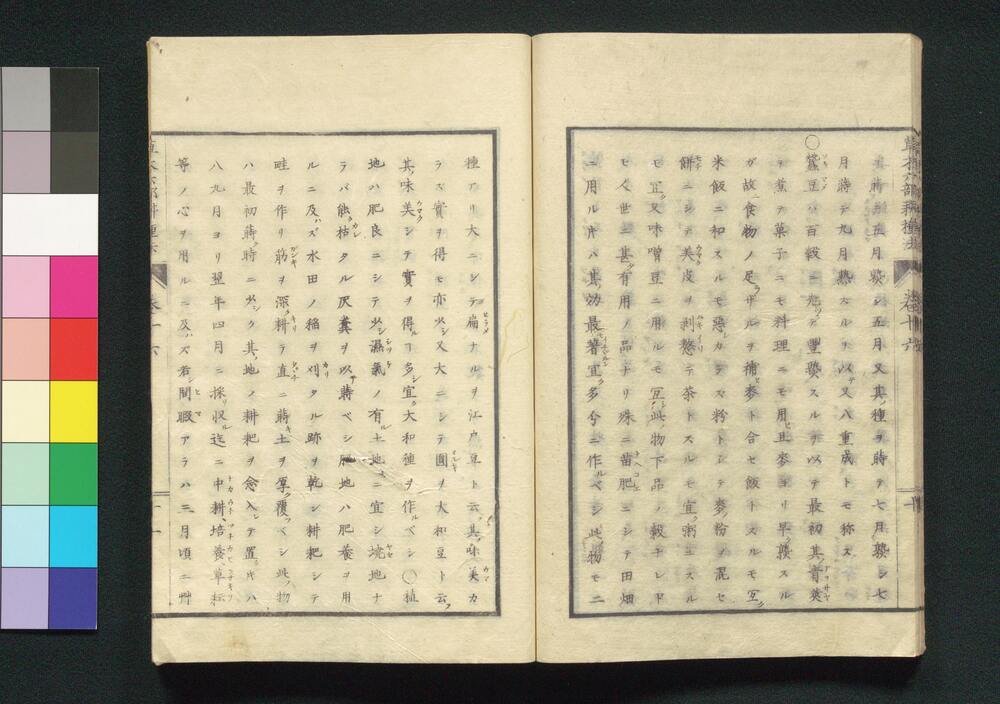 月蒔テ九月熟スルヲ以テ又八重成トモ称ス
○蠶豆ハ百穀ニ先ツテ豊熟スルヲ以テ最初其青莢
ヲ煮テ菓子ニモ料理ニモ用ヒ且麥ヨリ早ク熟スル
ガ故ニ食物ノ足ザルヲ補ヒ麥ト合セ飯トスルモ宜ク
米飯ニ和スルモ惡カラズ粉トシテ麥粉ノ混セ
餅ニシテ美ク皮ヲ剥熬テ茶トスルモ宜ク粥ニスル
モ宜ク又味噌豆ニ用ルモ宜シ此物下品ノ穀ナレド
モ人世ニ甚タ有用ノ品ナリ殊ニ苗肥ニシテ田畑
ニ用ル片ハ其効最著宜ク多分ニ作ルベシ此物モ二
種アリ大ニシテ扁ナルヲ江戸豆ト云フ其味美カ
ラズ實ヲ得モ亦少シ又大ニシテ圓ヲ大和豆ト云フ
其味美シテ實ヲ得ルヿ多シ宜ク大和種ヲ作ルベシ○植
地ハ肥良ニシテ少シ濕氣ノ有ル土地ニ宜シ墝地ナ
ラバ能ク枯タル灰糞ヲ以テ蒔ベシ肥地ハ肥養ヲ用
ルニ及ハズ水田ノ稲ヲ刈タル跡ヲ乾シ耕耙シテ
畦ヲ作リ筋ヲ深ク耕テ直ニ蒔キ土ヲ厚ク覆フベシ此物
ハ最初蒔時ニ少シク其地ノ耕耙ヲ念入テ置ク片ハ
八九月ヨリ翌年四月ニ採リ収ル迄ニ中耕培養草耘
等ノ心ヲ用ルニ及ハズ若シ間暇アラハ三月頃ニ艸